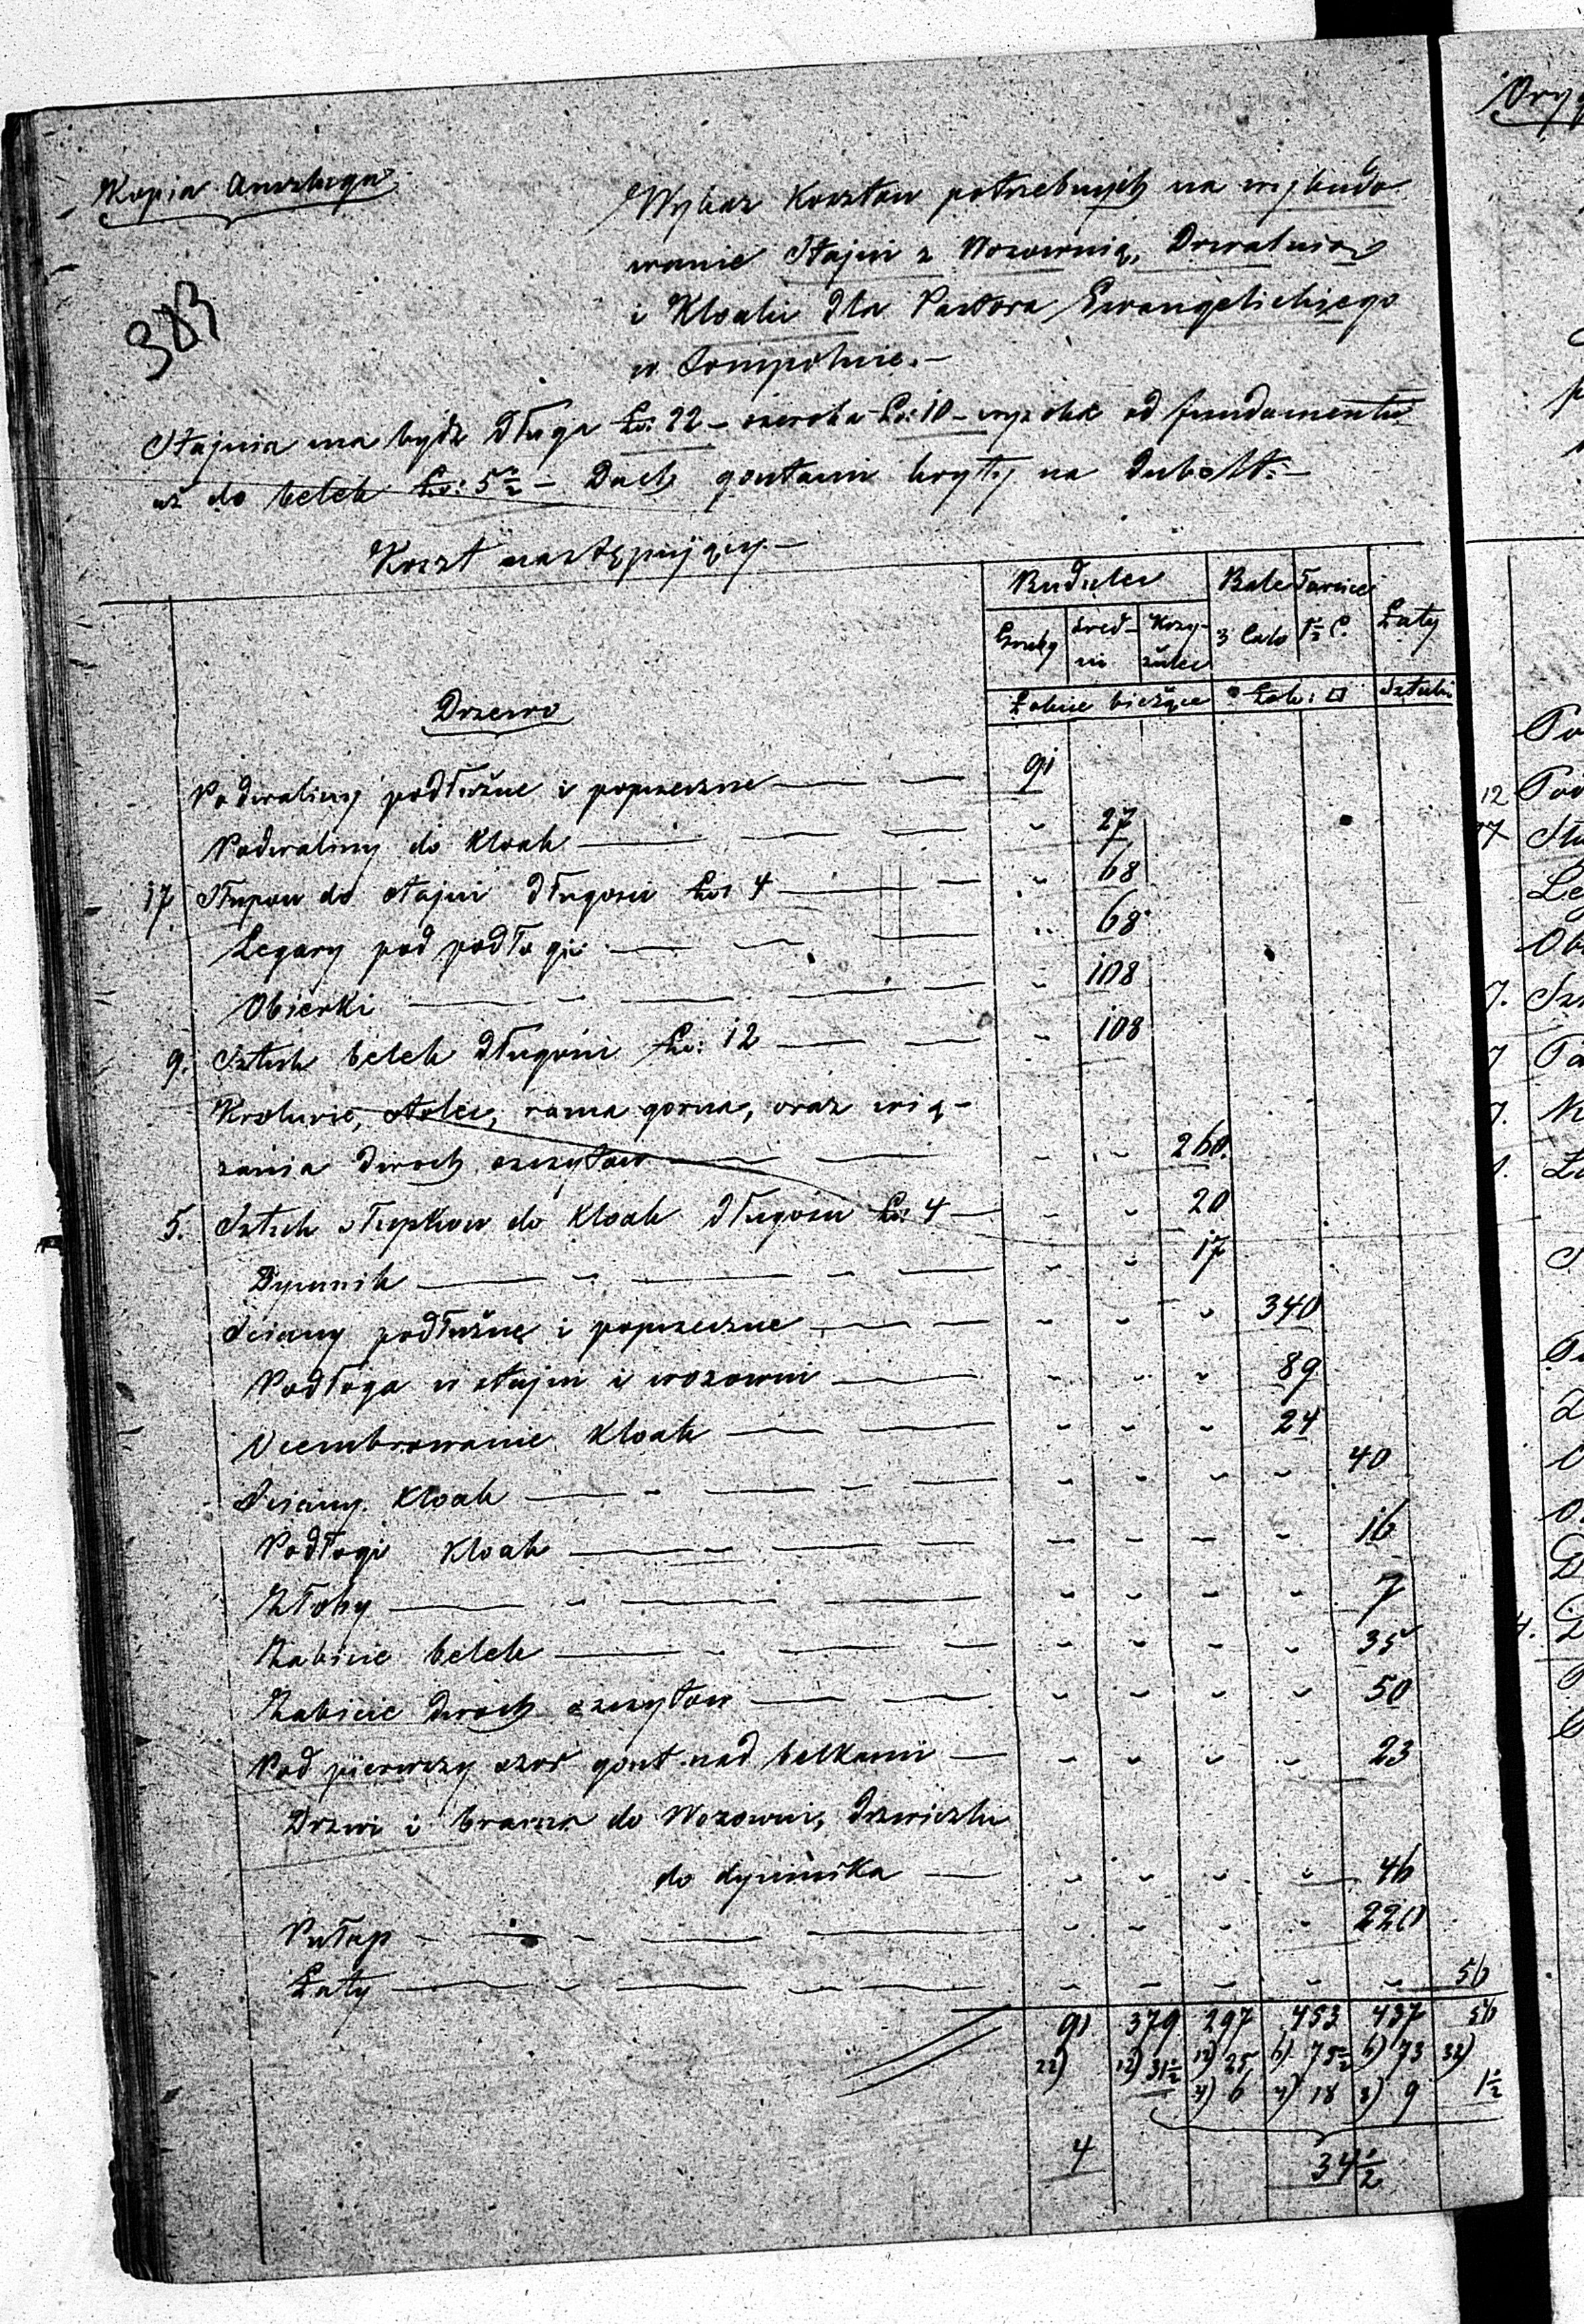 Kopia Anszlagu
383
Wykaz Kosztow potrzebnych na wybudo
wanie Stajni z Wozownią, Drwalnią
i Kloaki dla Pastora Ewangelickiego
w Sompolnie.—
Stajnia ma bydz długa Łoi: 22 — szeroka Łoi: 10 — wysoka od fundamentu
aż do belek Łoi: 5½ — Dach gontami kryty na dubelt:—
Koszt następujący.—
Budulec Bale Tarcice Łaty
Gruby śred- Kozy- 3 Calo 1½ C.
ni źulec
Łokcie bieżące Łok: □ Sztuki
Drzewo
Podwaliny podłużne i poprzeczne — — 91
Podwaliny do Kloak — — — " 27
17 Słupow do stajni długości Łoi 4 — — " 68
Legary pod podłogi — — " 68
Obierki — " — — — " 108
9. Sztuk belek długości Łoi: 12 — — " 108
Krokwie, stolec, rama gorna, oraz wią-
zania dwoch szczytow — — " " 260.
5. Sztuk słupkow do Kloak długości Łoi 4 — " " 20
Dymnik — " — " — " " 17
Sciany podłużne i poprzeczne — — " " " 340
Podłoga w stajni i wozowni — — " " " 89
Ocembrowanie Kloak — — " " " 24
Sciany Kloak — " — " — " " " " 40
Podłogi Kloak — " — " " " " 16
Żłoby — " — — " " " " 7
Zabicie belek — " — — " " " " 35
Zabicie dwoch szczytow — — — " " " " 50
Pod pierwszy szor gont nad belkami — " " " " 23
Drzwi i brama do Wozowni, drzwiczki
do dymnika — " " " " 46
Pułap — " — " — — " " " " 220
Łaty — " — " — " " " " " 56
91 379 297 453 437 56
22) 12) 31½ 12) 25 6) 75½ 6) 73 32)
4) 6 4) 18 8) 9 1½
4 34½